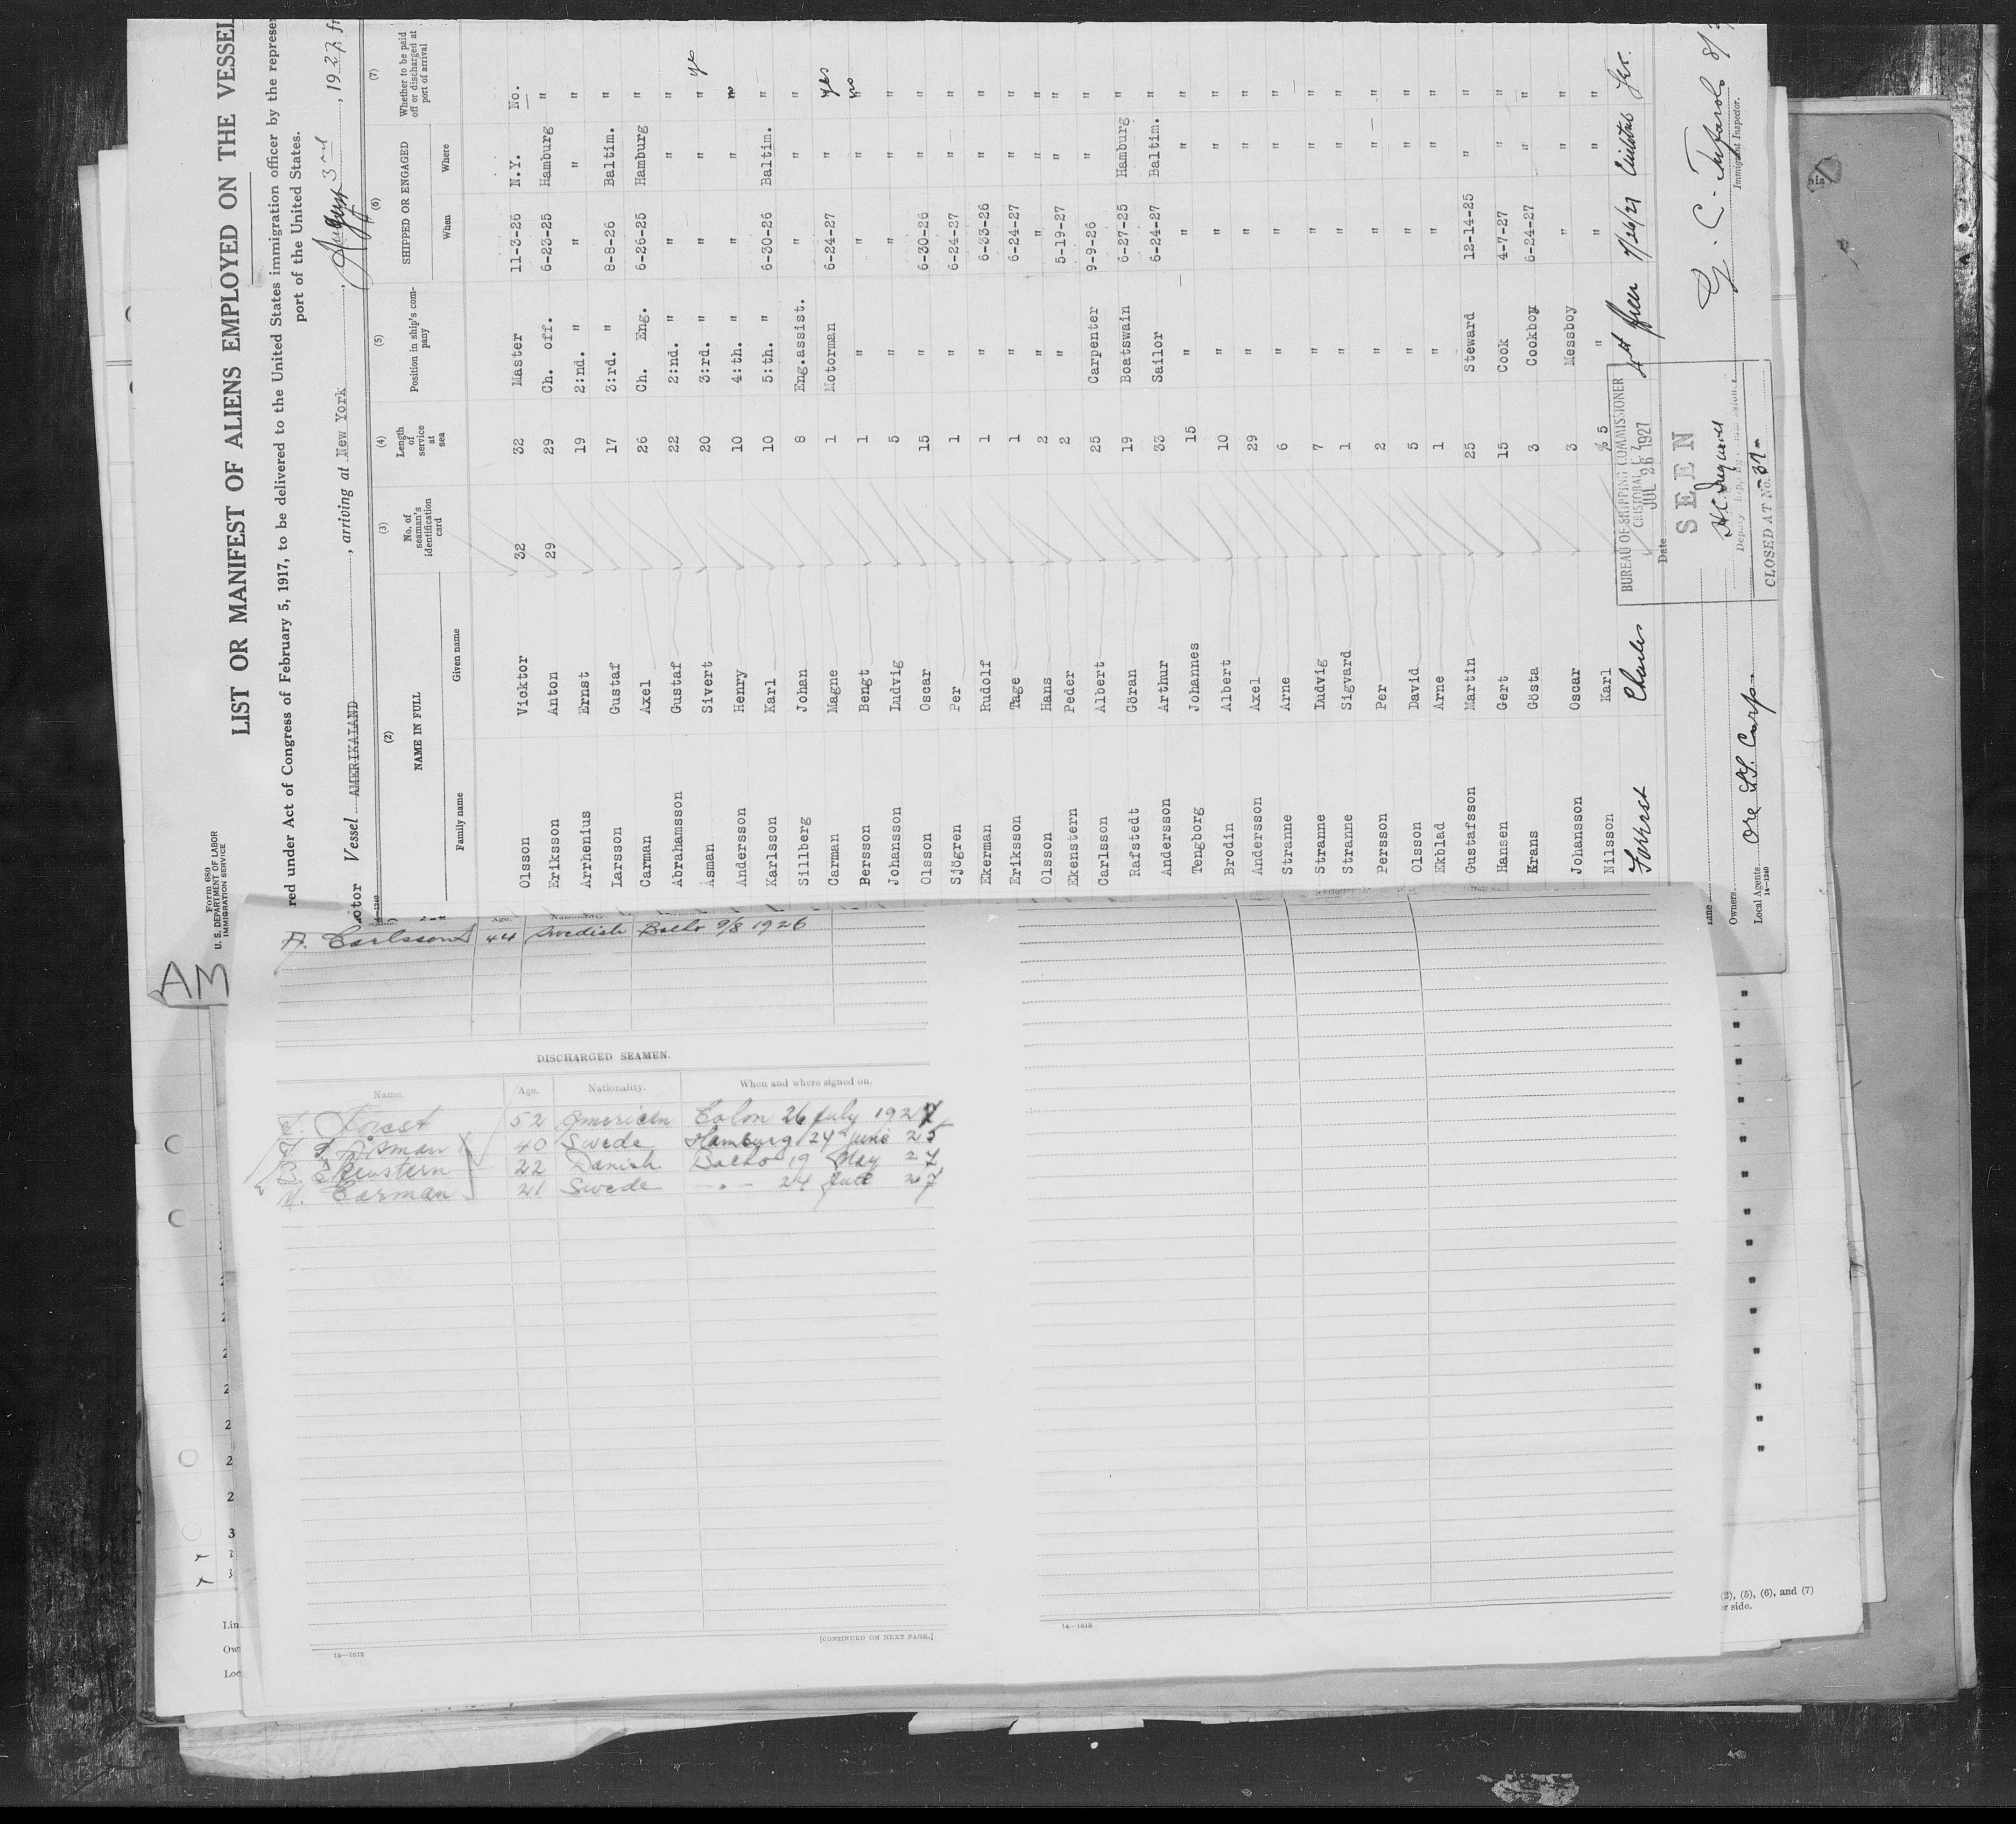 Form 680
U. S. DEPARTMENT OF LABOR
IMMIGRATION SERVICE
LIST OR MANIFEST OF ALIENS EMPLOYED ON THE VESSEL
red under Act of Congress of February 5, 1917, to be delivered to the United States immigration officer by the represe
port of the United States.
otor Vessel AMERIKALAND, arriving at New York, August 3rd, 1927, fr
(2) (3) (4) (5) (6) (7)
NAME IN FULL
Family name Given name
No. of seaman's identification card
Length of service at sea
Position in ship's company
SHIPPED OR ENGAGED
When Where
Whether to be paid off or discharged at port of arrival
Olsson Vicktor 32 32 Master 11-3-26 N.Y. No.
Eriksson Anton 29 29 Ch. off. 6-23-25 Hamburg "
Arrhenius Ernst 19 2:nd. " " " "
Larsson Gustaf 17 3:rd. " 8-8-26 Baltim. "
Carman Axel 26 Ch. Eng. 6-26-25 Hamburg "
Abrahamsson Gustaf 22 2:nd. " " " "
Asman Sivert 20 3:rd. " " " " yes
Andersson Henry 10 4:th. " " " no
Karlsson Karl 10 5:th. " 6-30-26 Baltim. "
Sillberg Johan 8 Eng.assist. " " "
Carman Magne 1 Motorman 6-24-27 " yes
Bersson Bengt 1 " " " no
Johansson Ludvig 5 " " " "
Olsson Oscar 15 " 6-30-26 " "
Sjögren Per 1 " 6-24-27 " "
Ekerman Rudolf 1 " 6-33-26 " "
Eriksson Tage 1 " 6-24-27 " "
Olsson Hans 2 " " " "
Ekenstern Peder 2 " 5-19-27 " "
Carlsson Albert 25 Carpenter 9-9-26 " "
Rafstedt Göran 19 Boatswain 6-27-25 Hamburg "
Andersson Arthur 33 Sailor 6-24-27 Baltim. "
Tengborg Johannes 15 " " " "
Brodin Albert 10 " " " "
Andersson Axel 29 " " " "
Stranne Arne 6 " " " "
Stranne Ludvig 7 " " " "
Stranne Sigvard 1 " " " "
Persson Per 2 " " " "
Olsson David 5 " " " "
Ekblad Arne 1 " " " "
Gustafsson Martin 25 Steward 12-14-25 " "
Hansen Gert 15 Cook 4-7-27 " "
Krans Gösta 3 Cookboy 6-24-27 " "
Johansson Oscar 3 Messboy " " "
Nilsson Karl 5 " " " "
Forrest Charles 7/26/27
BUREAU OF SHIPPING COMMISSIONER
CRISTOBAL C. Z.
JUL 26 1927
Date
SEEN
CLOSED AT No. 37
Immigrant Inspector.
Line
Owners
Local Agents Ore S.S. Corp.
14—1240
AM
A. Carlsson 44 Swedish Balto 9/8 1926
DISCHARGED SEAMEN.
Name. Age. Nationality. When and where signed on.
Forest 52 American Colon 26 July 1927
Åsman 40 Swede Hamburg 24 June 25
Ekenstern 22 Danish Balto 19 May 27
M. Carman 21 Swede — " — 24 June 27
[CONTINUED ON NEXT PAGE.]
14—1613
14—1613
(2), (5), (6), and (7)
r side.
2
2
2
3
3
3
Lin
Ow
Loc